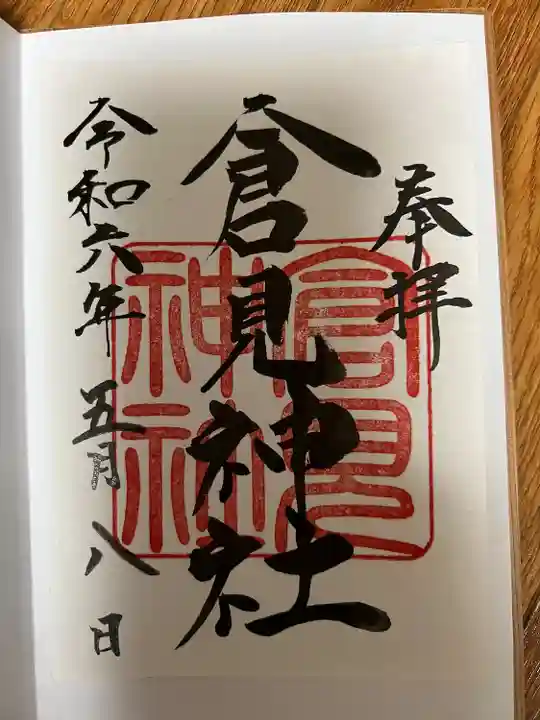 奉拝
倉見神社
倉見
神社
令和六年五月八日